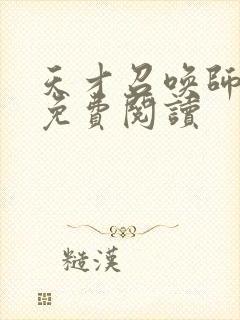 天才召喚師
免費閱讀
糙漢